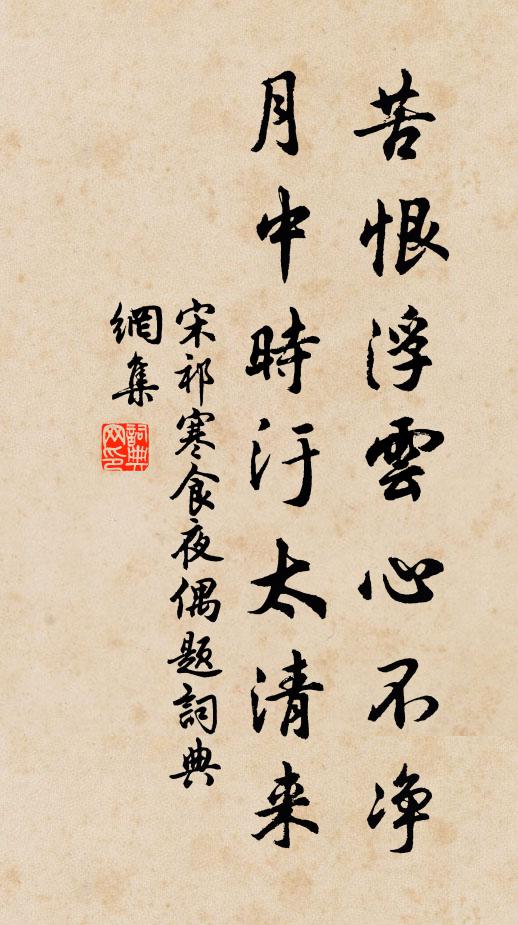 苦恨浮雲心不净
月中時汙太清来
宋祁寒食夜偶題詞典
網集
詞典網印